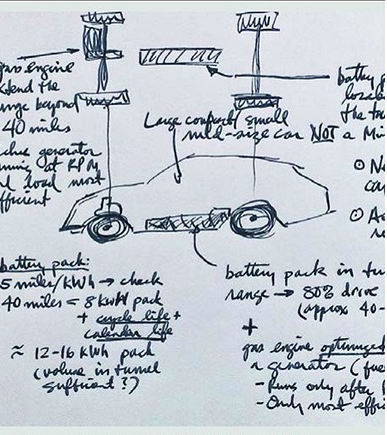 gas engine
extend the
range beyond
40 miles
generator
running at RPM
and load most
efficient
battery
locat
the tu
Large compact/small
mid-size car NOT a Min
battery pack:
5 miles/kWh → check
40 miles = 8 kWh pack
+ cycle life +
calendar life
≈ 12-16 kWh pack
(volume in tunnel
sufficient?)
battery pack in tu
range → 80% drive
(approx 40-
+
gas engine optimized
a generator (fue
- Runs only after
- Only most effi